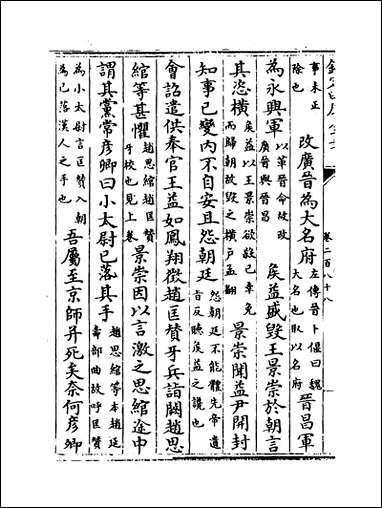 卷二百八十八
事未正除也改廣晉為大名府左傳晉卜偃曰魏大名也取以名府晉昌軍
為永興軍以革晉命故改廣晉與晉昌矦益盛毀王景崇於朝言
其恣橫矦益以王景崇欲殺己幸免而歸朝故毀之橫戶孟翻景崇聞益尹開封
知事已變内不自安且怨朝廷怨朝廷不能體先帝遺旨反聽矦益之讒也
會詔遣供奉官王益如鳳翔徵趙匡贊牙兵詣闕趙思
綰等甚懼趙思綰趙匡贊牙校也見上卷景崇因以言激之思綰途中
謂其黨常彦卿曰小太尉已落其手趙思綰等本趙延壽部曲故呼匡贊
為小太尉言匡贊入朝為已落漢人之手也吾屬至京師并死矣奈何彦卿